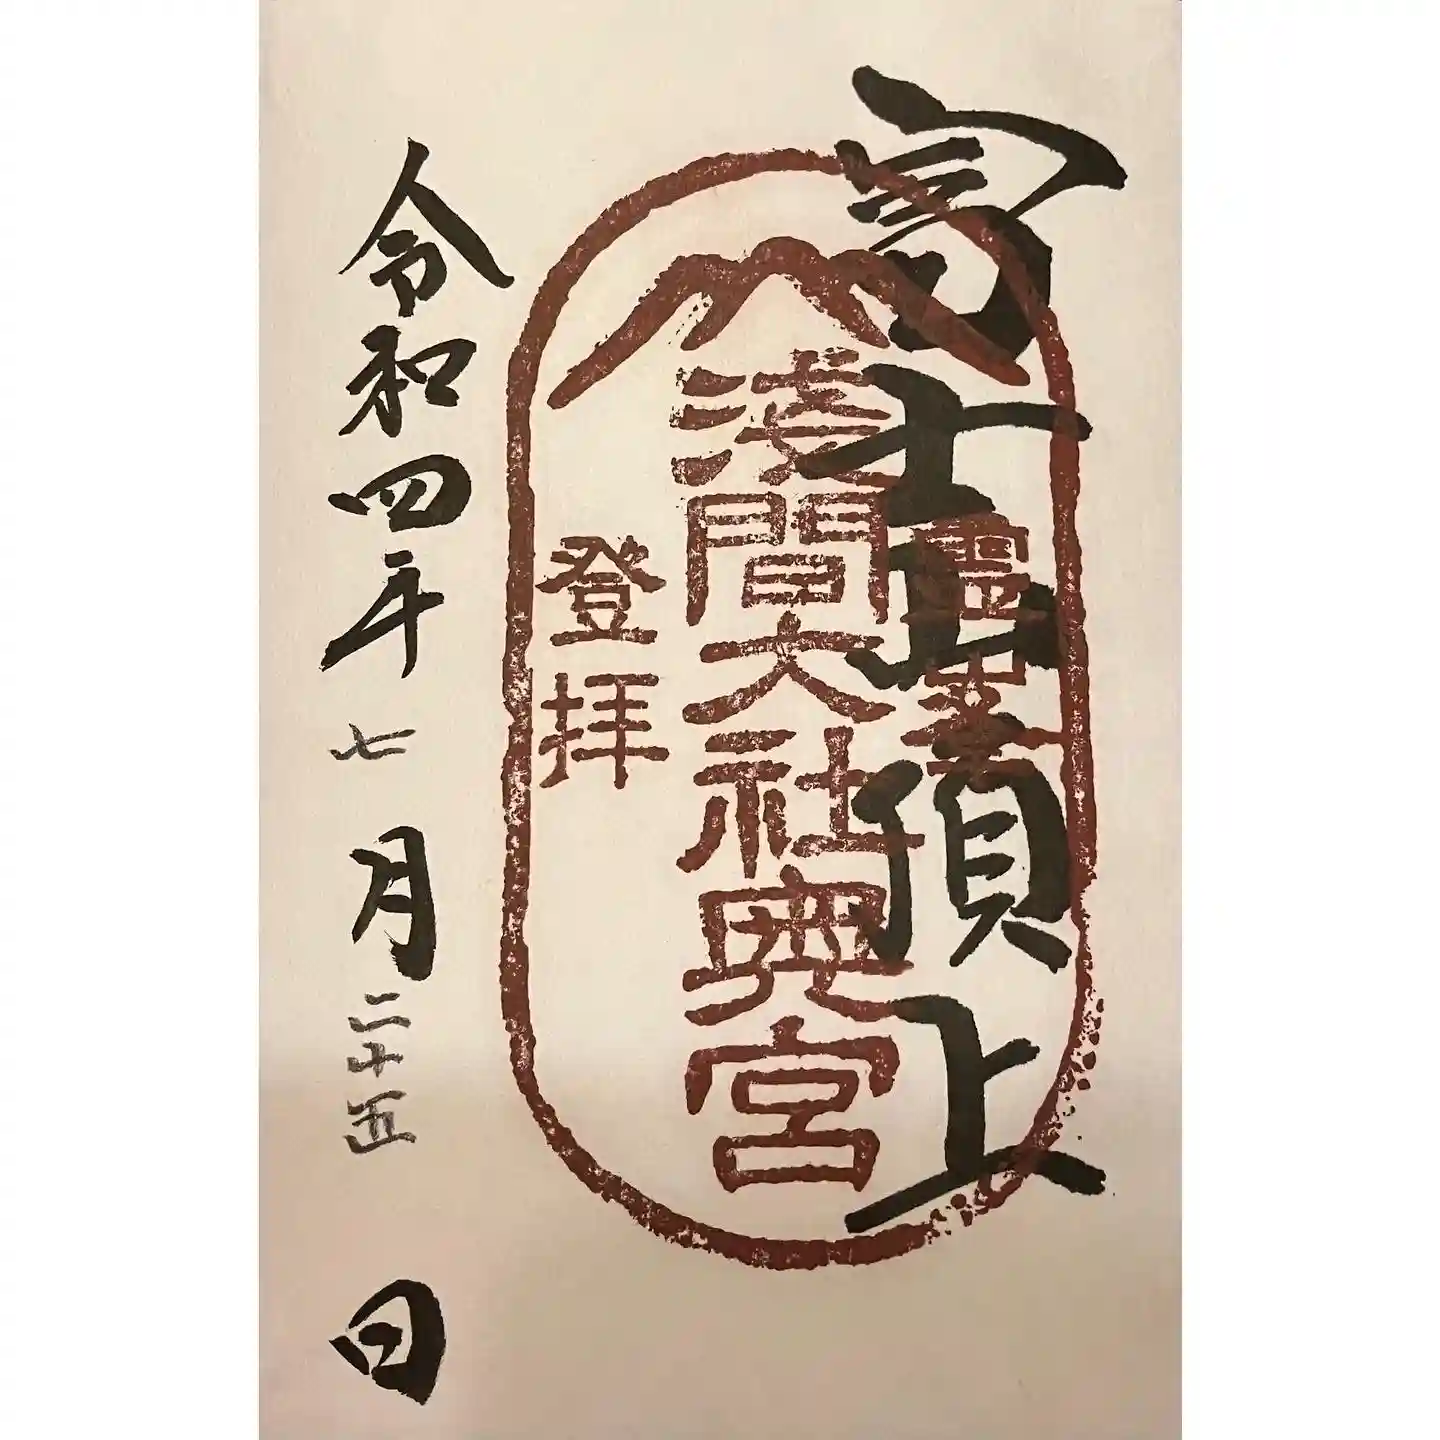 冨士山頂上
霊峯
浅間大社奥宮
登拝
令和四年七月二十五日